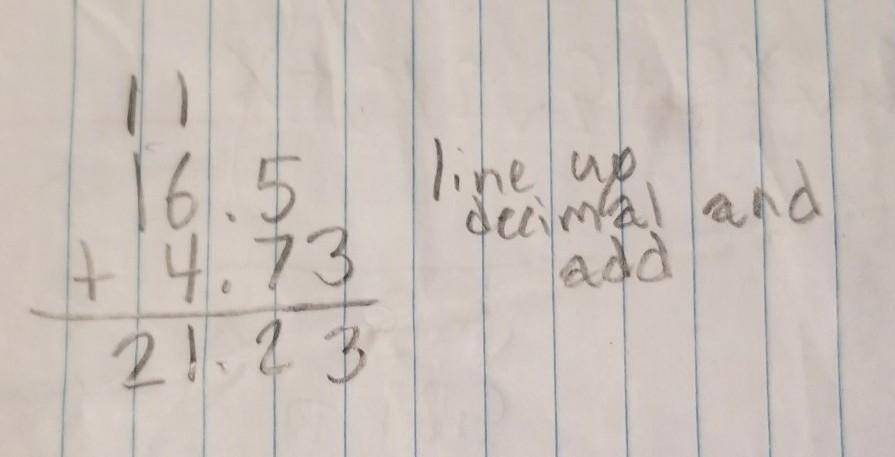 11
16.5
+ 4.73
21.23
line up
decimal and
add